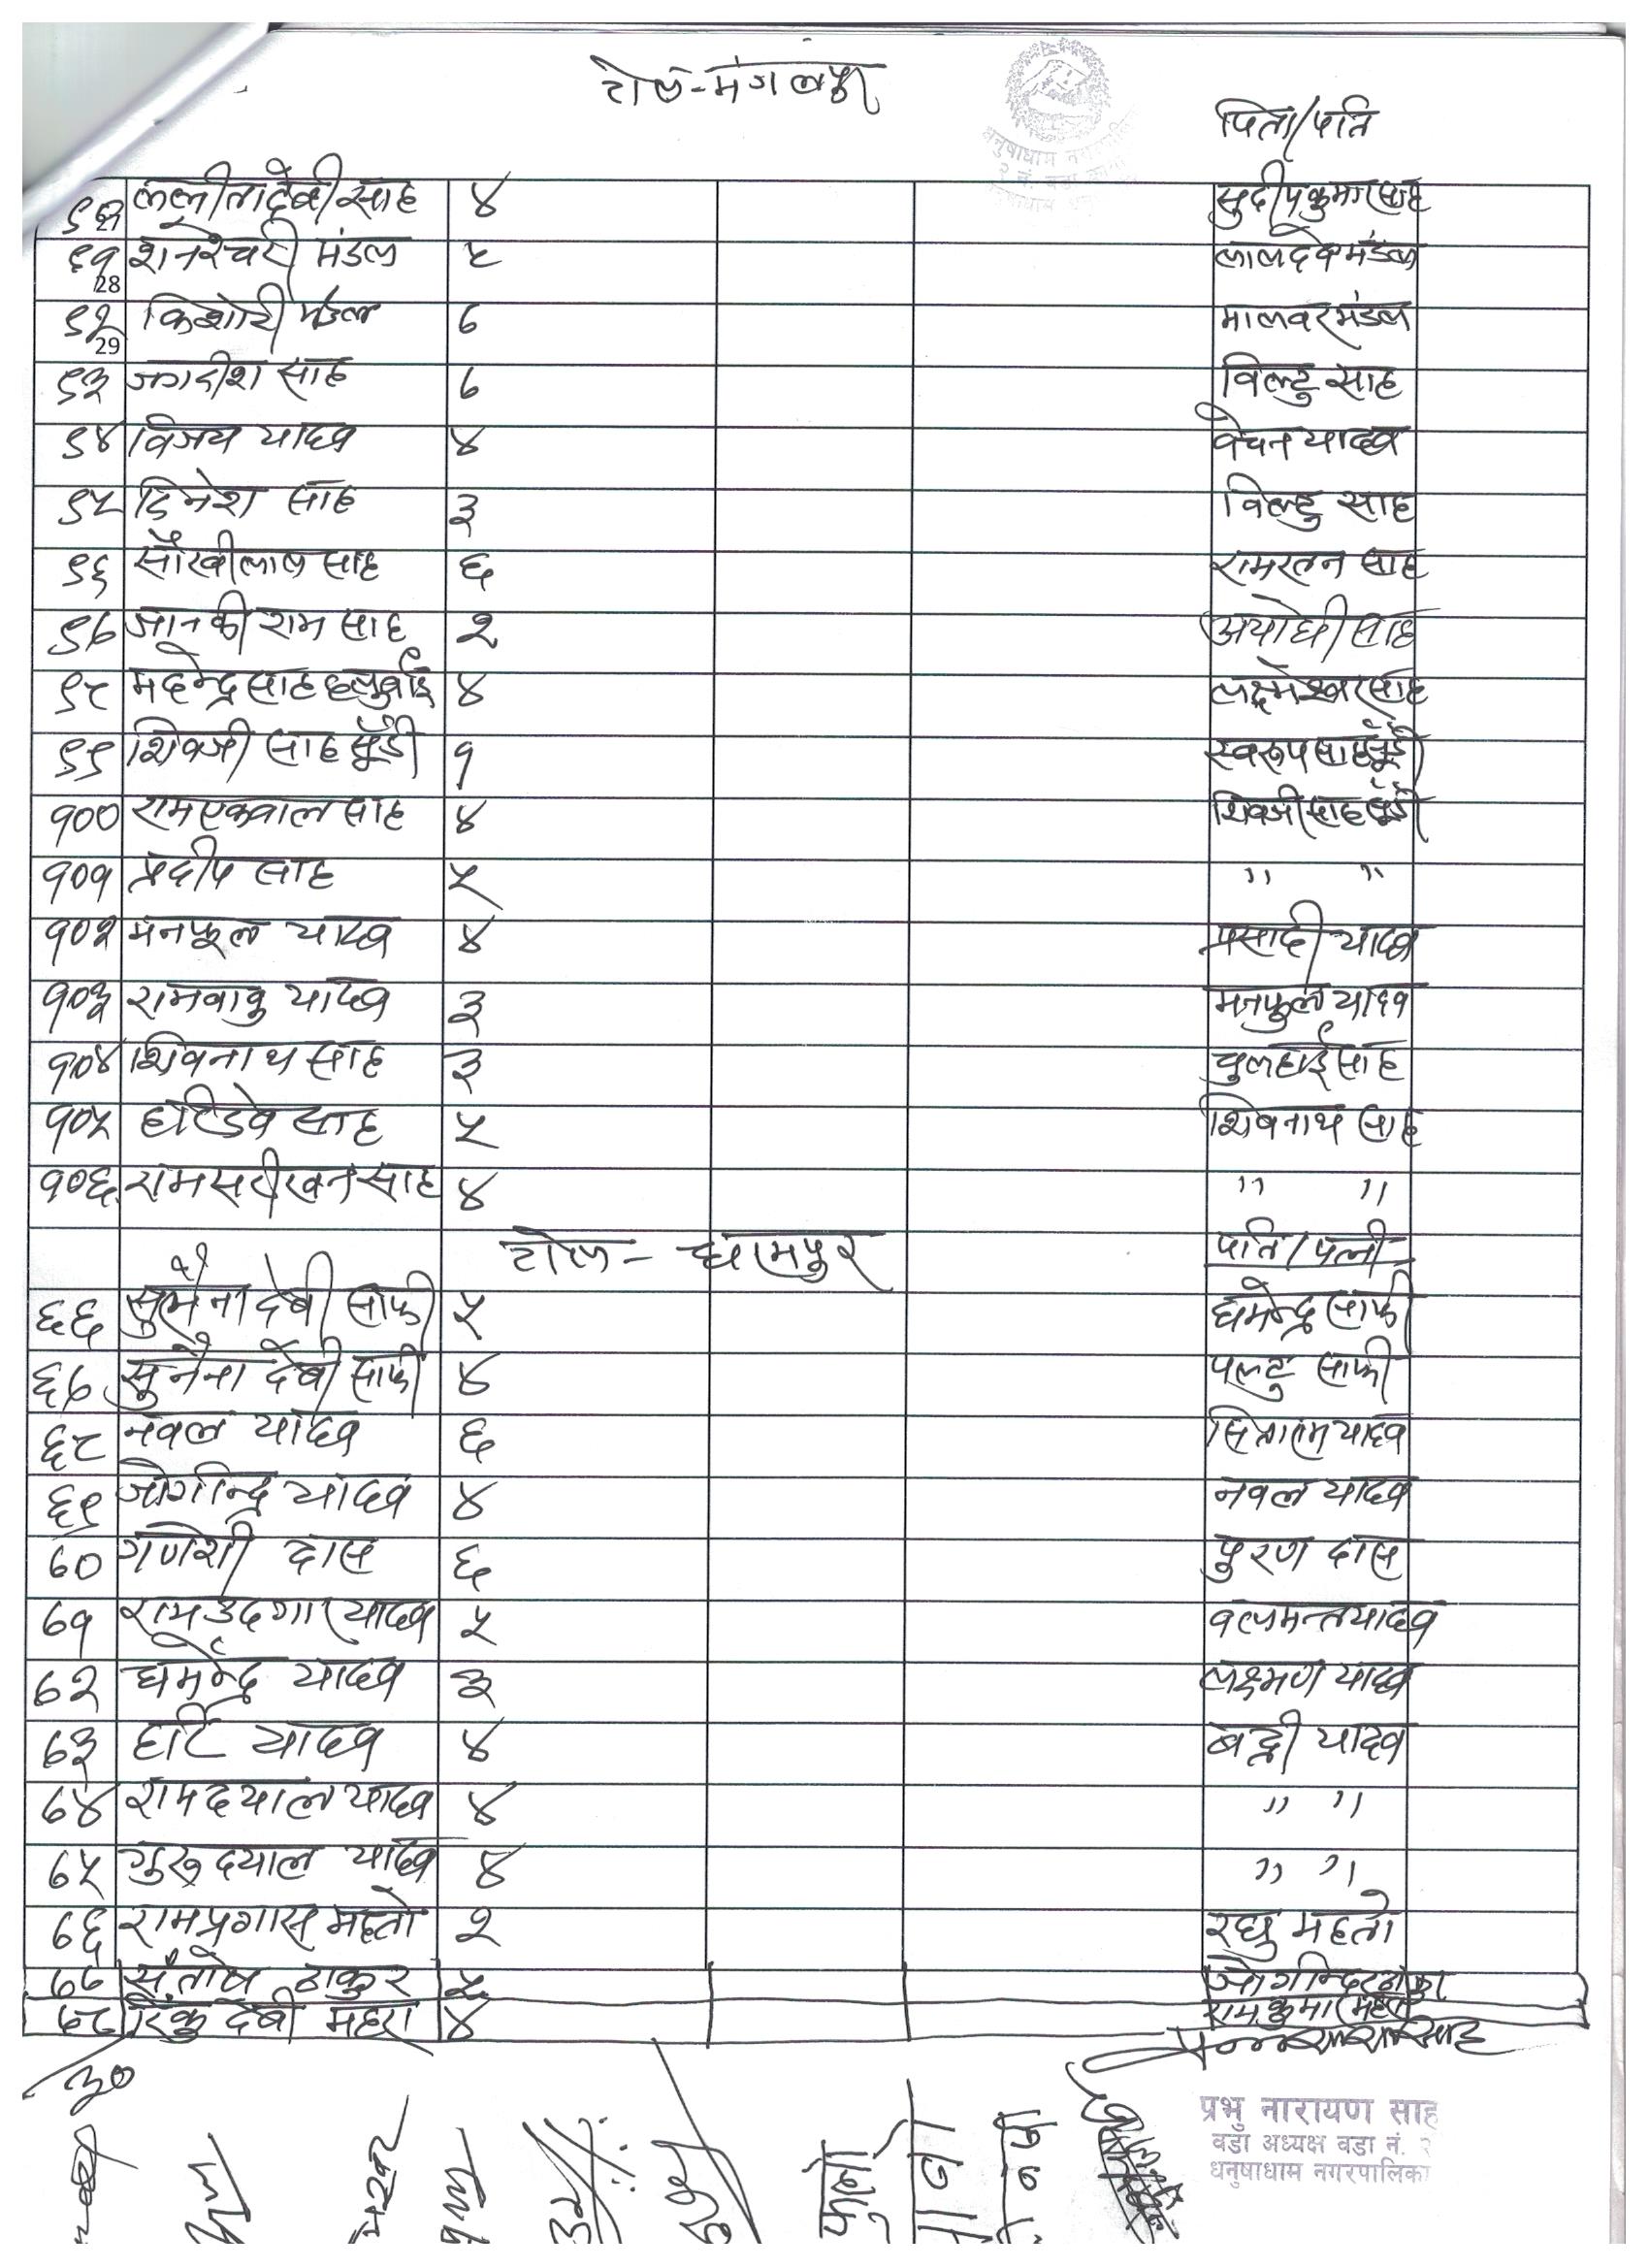 टोल-मंगलपुर
धनुषाधाम नगरपालिका
पिता/पति
27 ललीतादेवी साह ४ सुदीपकुमार साह
९१ शनेश्चरी मंडल ५ लालदेव मंडल
28
९२ किशोरी मंडल ७ मालवर मंडल
29
९३ जगदीश साह ७ विल्टु साह
९४ विजय यादव ४ वेचन यादव
९५ दिनेश साह ३ विल्टु साह
९६ सौखीलाल साह ६ रामरतन साह
९७ जानकी राम साह २ अयोधी साह
९८ महेन्द्र साह हलुवाई ४ लक्ष्मेश्वर साह
९९ शिवजी साह सुँडी १ स्वरूप साह सुँडी
१०० रामएकवाल साह ४ शिवजी साह सुँडी
१०१ प्रदीप साह ५ " "
१०२ मनफूल यादव ४ प्रसादी यादव
१०३ रामवावु यादव ३ मनफुल यादव
१०४ शिवनाथ साह ३ चुलहाई साह
१०५ हरिदेव साह ५ शिवनाथ साह
१०६ रामसटीखन साह ४ " "
टोल - धामपुर पति/पत्नी
६६ देवी साफी ५ धमेन्द्र साफी
६७ सुनैना देवी साफी ४ पल्टु साफी
६८ नवल यादव ६ सिताराम यादव
६९ जोगीन्द्र यादव ४ नवल यादव
७० गणेशी दास ६ पुरण दास
७१ रामउदगार यादव ५ वलमन्त यादव
७२ धर्मेन्द्र यादव ३ लक्ष्मण यादव
७३ हरि यादव ४ बद्री यादव
७४ रामदयाल यादव ४ " "
७५ गुरुदयाल यादव ४ " "
७६ रामप्रगास महतो २ रघु महतो
७७ संतोष ठाकुर ५ जोगिन्दर ठाकुर
७८ रिंकु देवी महरा ४ रामकुमार महरा
३०
प्रभु नारायण साह
वडा अध्यक्ष वडा नं. २
धनुषाधाम नगरपालिका